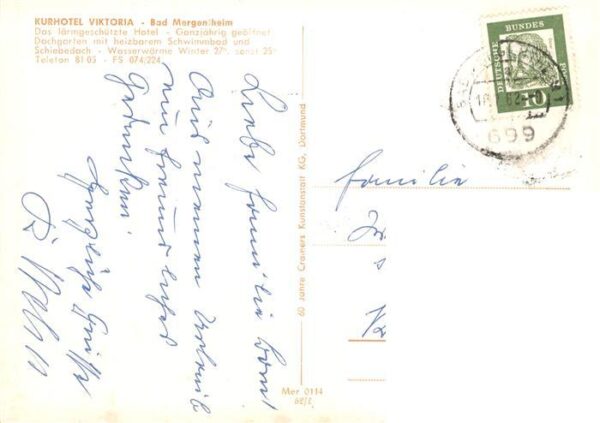 KURHOTEL VIKTORIA - Bad Mergentheim
Das lärmgeschützte Hotel - Ganzjährig geöffnet
Dachgarten mit heizbarem Schwimmbad und
Schiebedach - Wasserwärme Winter 27°, sonst 25°
Telefon 81 03 - FS 074/224
Liebe Familie
Aus meinem Urlaub
ein
Gedenken.
Herzliche Grüße
60 Jahre Cramers Kunstanstalt KG, Dortmund
Mer 0114
DEUTSCHE BUNDES
10
699
Familie